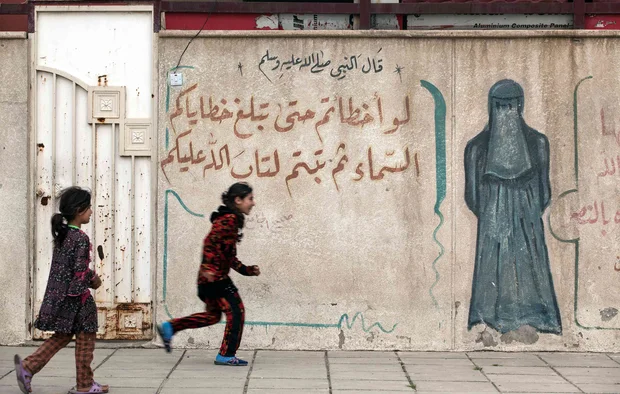 Aluminium Composite Panel
قال النبي صلى الله عليه وسلم
لو أخطأتم حتى تبلغ خطاياكم
السماء ثم تبتم لتاب الله عليكم